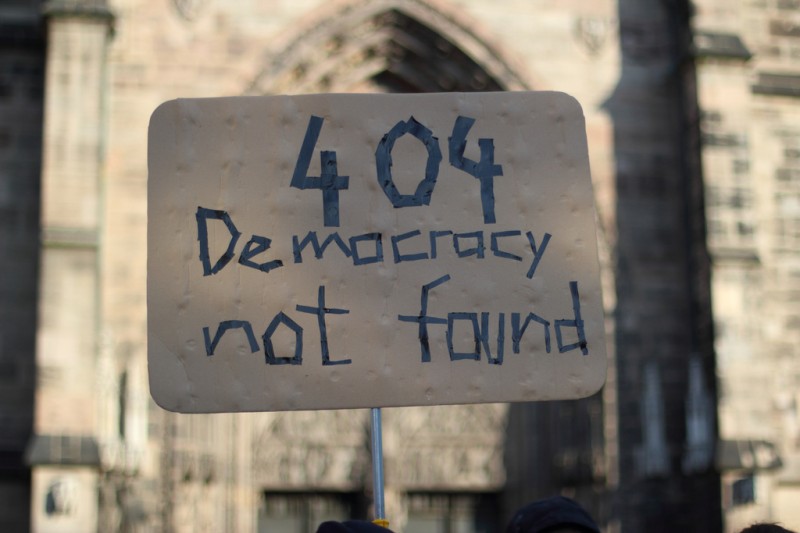 404
Democracy
not found